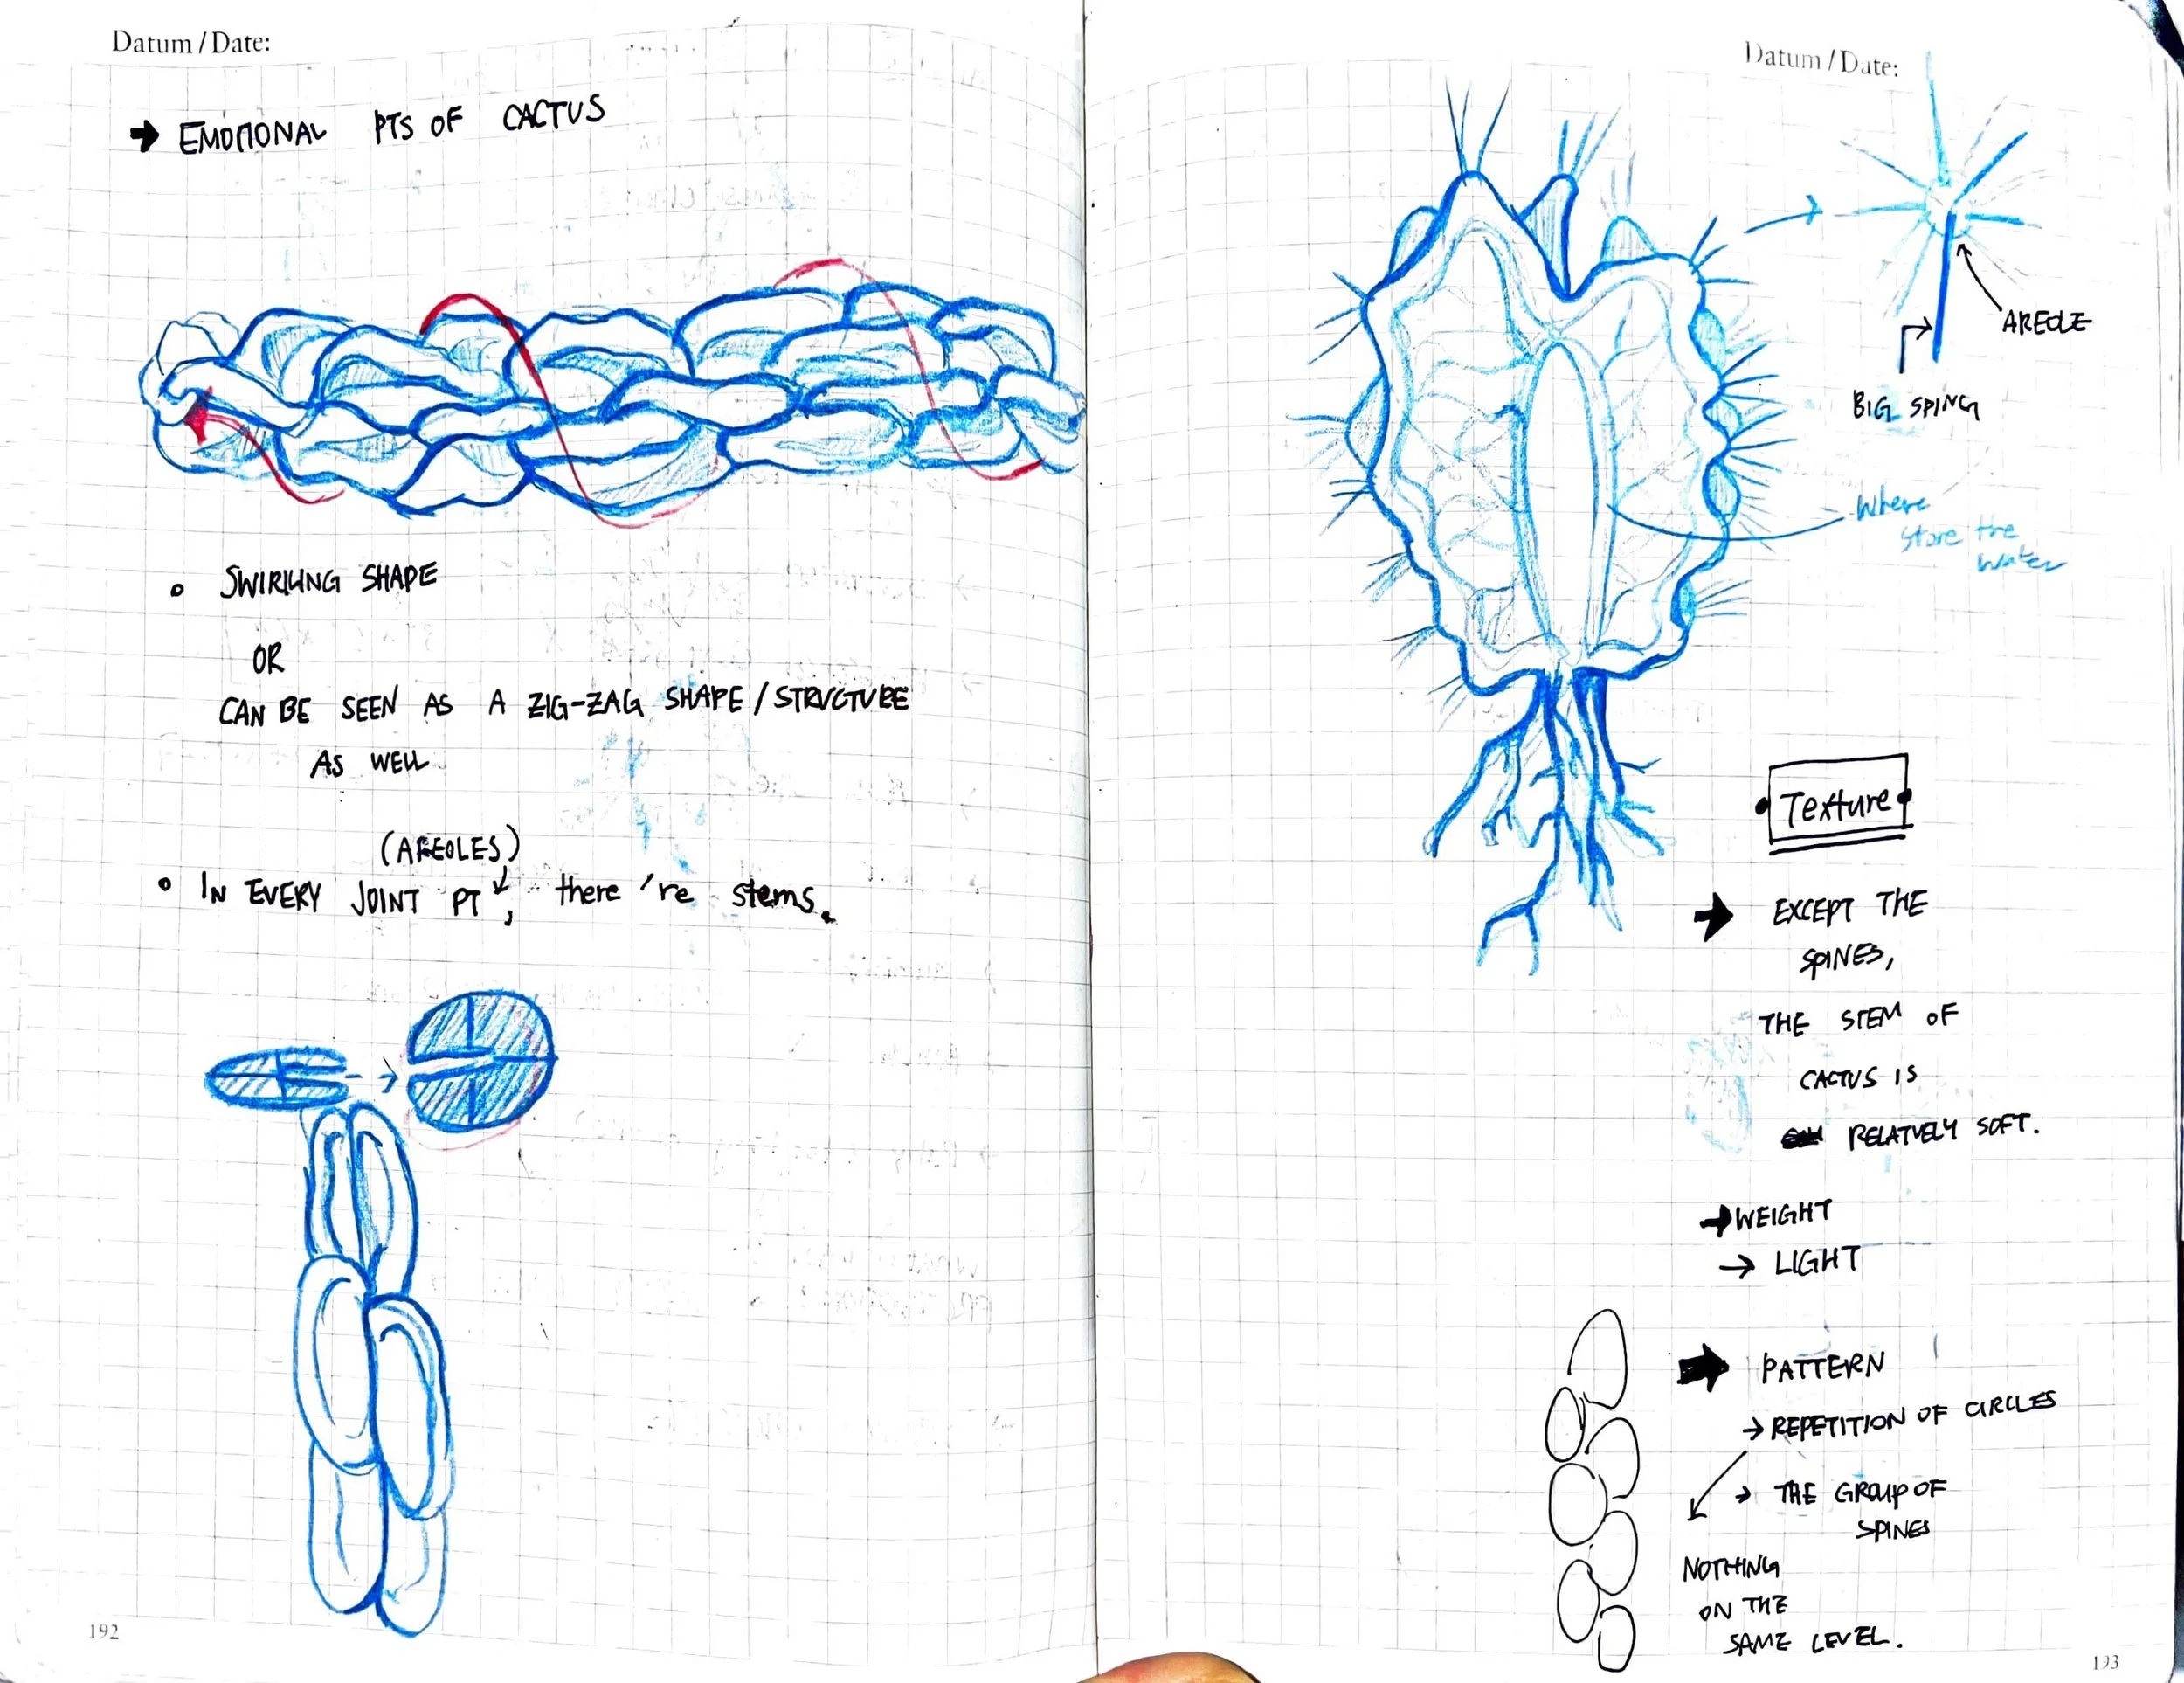 Datum / Date:
→ EMOTIONAL PTS OF CACTUS
• SWIRLING SHAPE
OR
CAN BE SEEN AS A ZIG-ZAG SHAPE / STRUCTURE
AS WELL
(AREOLES)
• IN EVERY JOINT PT, there 're stems.
192
Datum / Date:
AREOLE
BIG SPING
Where
Store the
Water
Texture
→ EXCEPT THE
SPINES,
THE STEM OF
CACTUS IS
RELATIVELY SOFT.
→ WEIGHT
→ LIGHT
→ PATTERN
→ REPETITION OF CIRCLES
→ THE GROUP OF
SPINES
NOTHING
ON THE
SAME LEVEL.
193